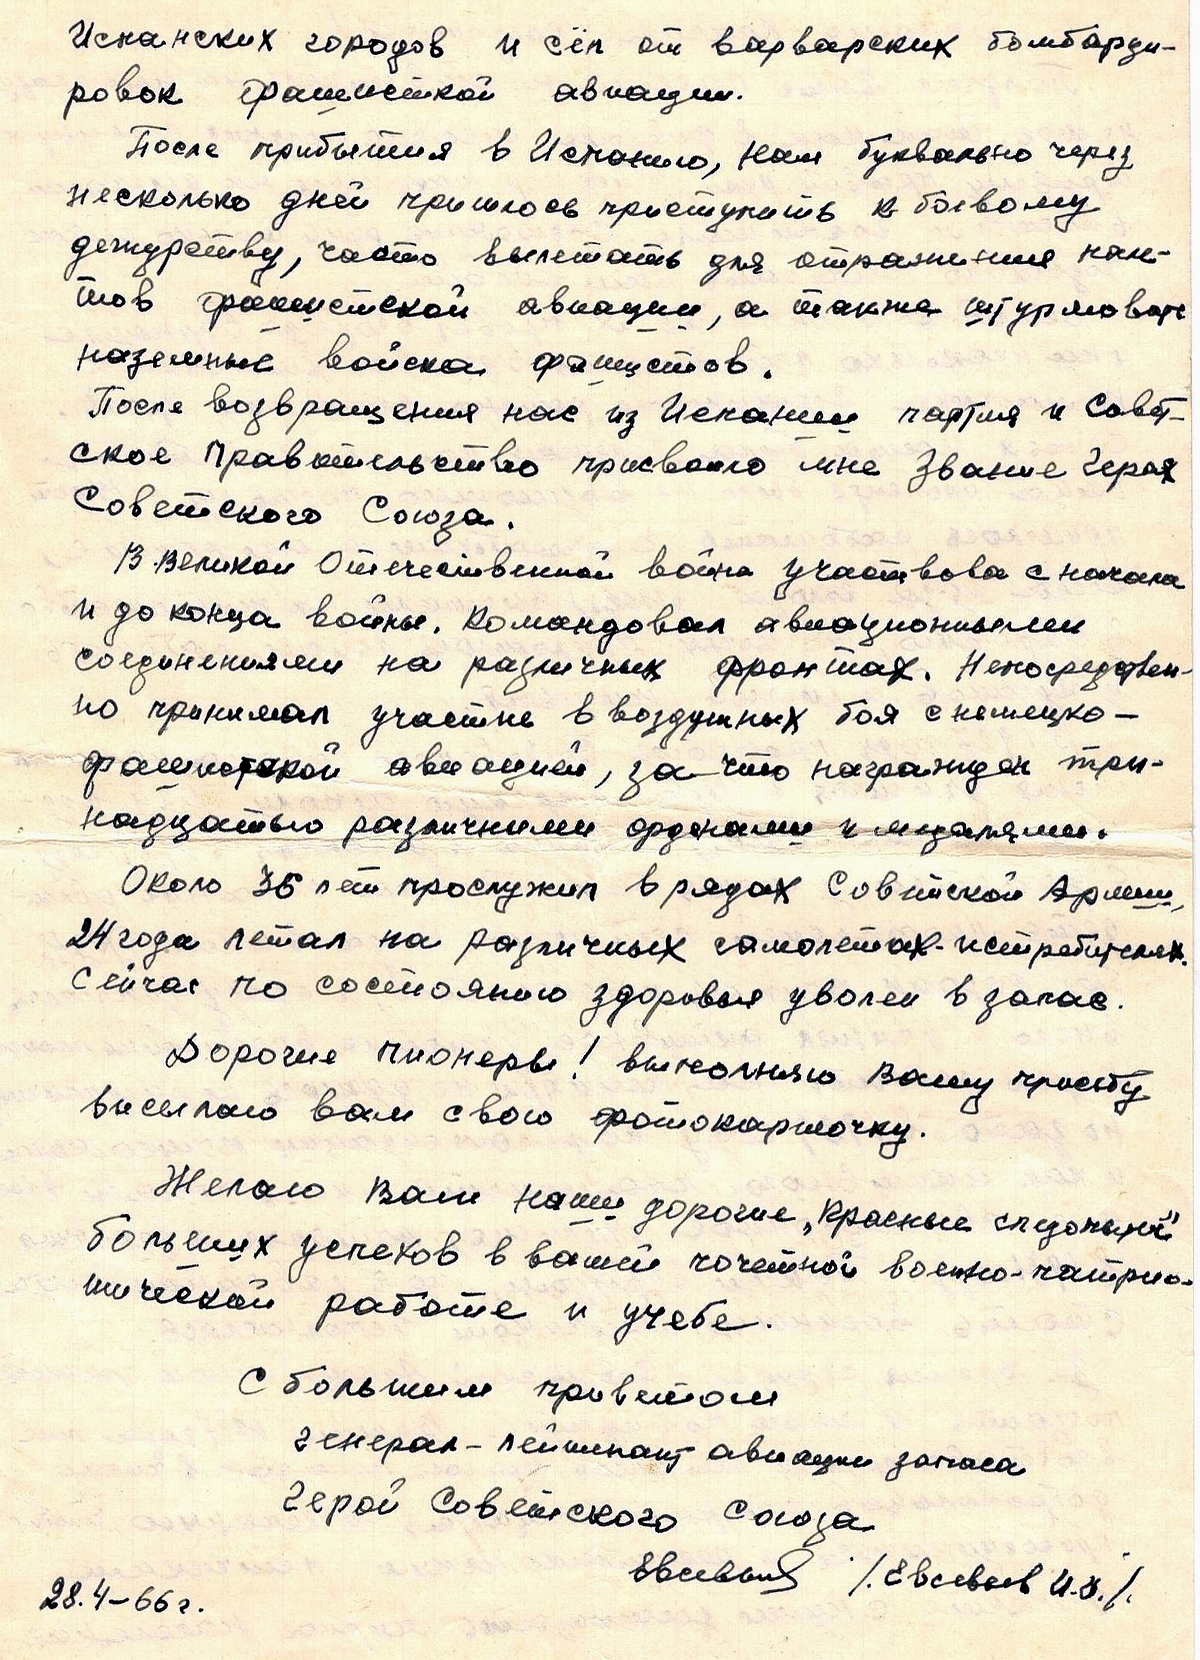 Испанских городов и сёл от варварских бомбарди-
ровок фашисткой авиации.
После прибытия в Испанию, нам буквально через
несколько дней пришлось приступить к боевому
дежурству, часто вылетать для отражения нале-
тов фашистской авиации, а также штурмовать
наземные войска фашистов.
После возвращения нас из Испании партия и Совет-
ское Правительство присвоило мне Звание Героя
Советского Союза.
В Великой Отечественной войне участвовал с начала
и до конца войны. Командовал авиационными
соединениями на различных фронтах. Непосредствен-
но принимал участие в воздушных боя с немецко-
фашистской авиацией, за что награжден три-
надцатью различными орденами и медалями.
Около 36 лет прослужил в рядах Советской Армии,
24 года летал на различных самолетах-истребителях.
Сейчас по состоянию здоровья уволен в запас.
Дорогие пионеры! выполняю Вашу просьбу
высылаю вам свою фотокарточку.
Желаю Вам наши дорогие „Красные следопыты"
больших успехов в вашей почетной военно-патрио-
тической работе и учебе.
С большим приветом
генерал-лейтенант авиации запаса
Герой Советского Союза
Евсевьев /.Евсевьев И.И./.
28.4-66 г.